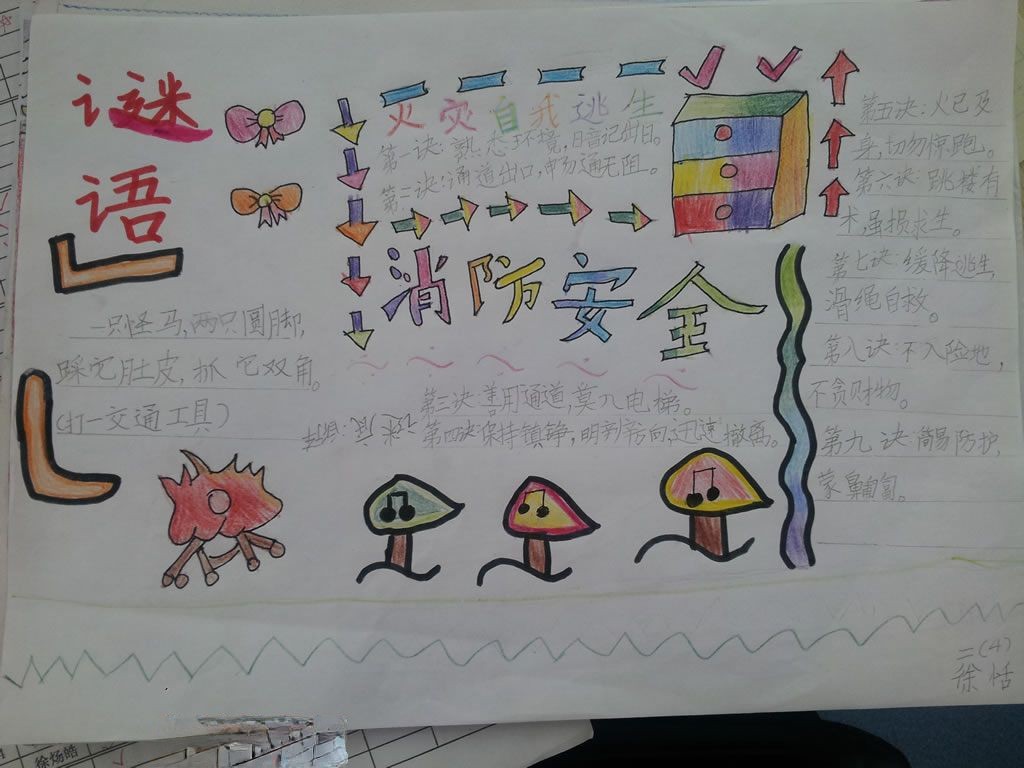 谜
语
一只怪马,两只圆脚,
踩它肚皮,抓它双角。
(打一交通工具)
火灾自我逃生
第一诀:熟悉环境,日音记出口。
第二诀:通道出口,申匆通无阻。
消防安全
第三诀:善用通道,莫入电梯。
第四诀:保持镇铮,明剂方向,迅速撤离。
第五诀:火已及
身,切勿惊跑。
第六诀:跳楼有
术,虽损求生。
第七诀:缓降逃生,
滑绳自救。
第八诀:不入险地,
不贪财物。
第九诀:简易防护,
蒙鼻匍匐。
二(4)
徐恬
徐炀皓